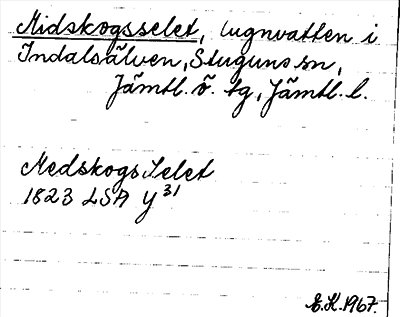 Midskogsselet, lugnvatten i
Indalsälven, Stuguns sn,
Jämtl. ö. tg, Jämtl. l.
Medskogs Selet
1823 LSA Y³¹
E.K. 1967.